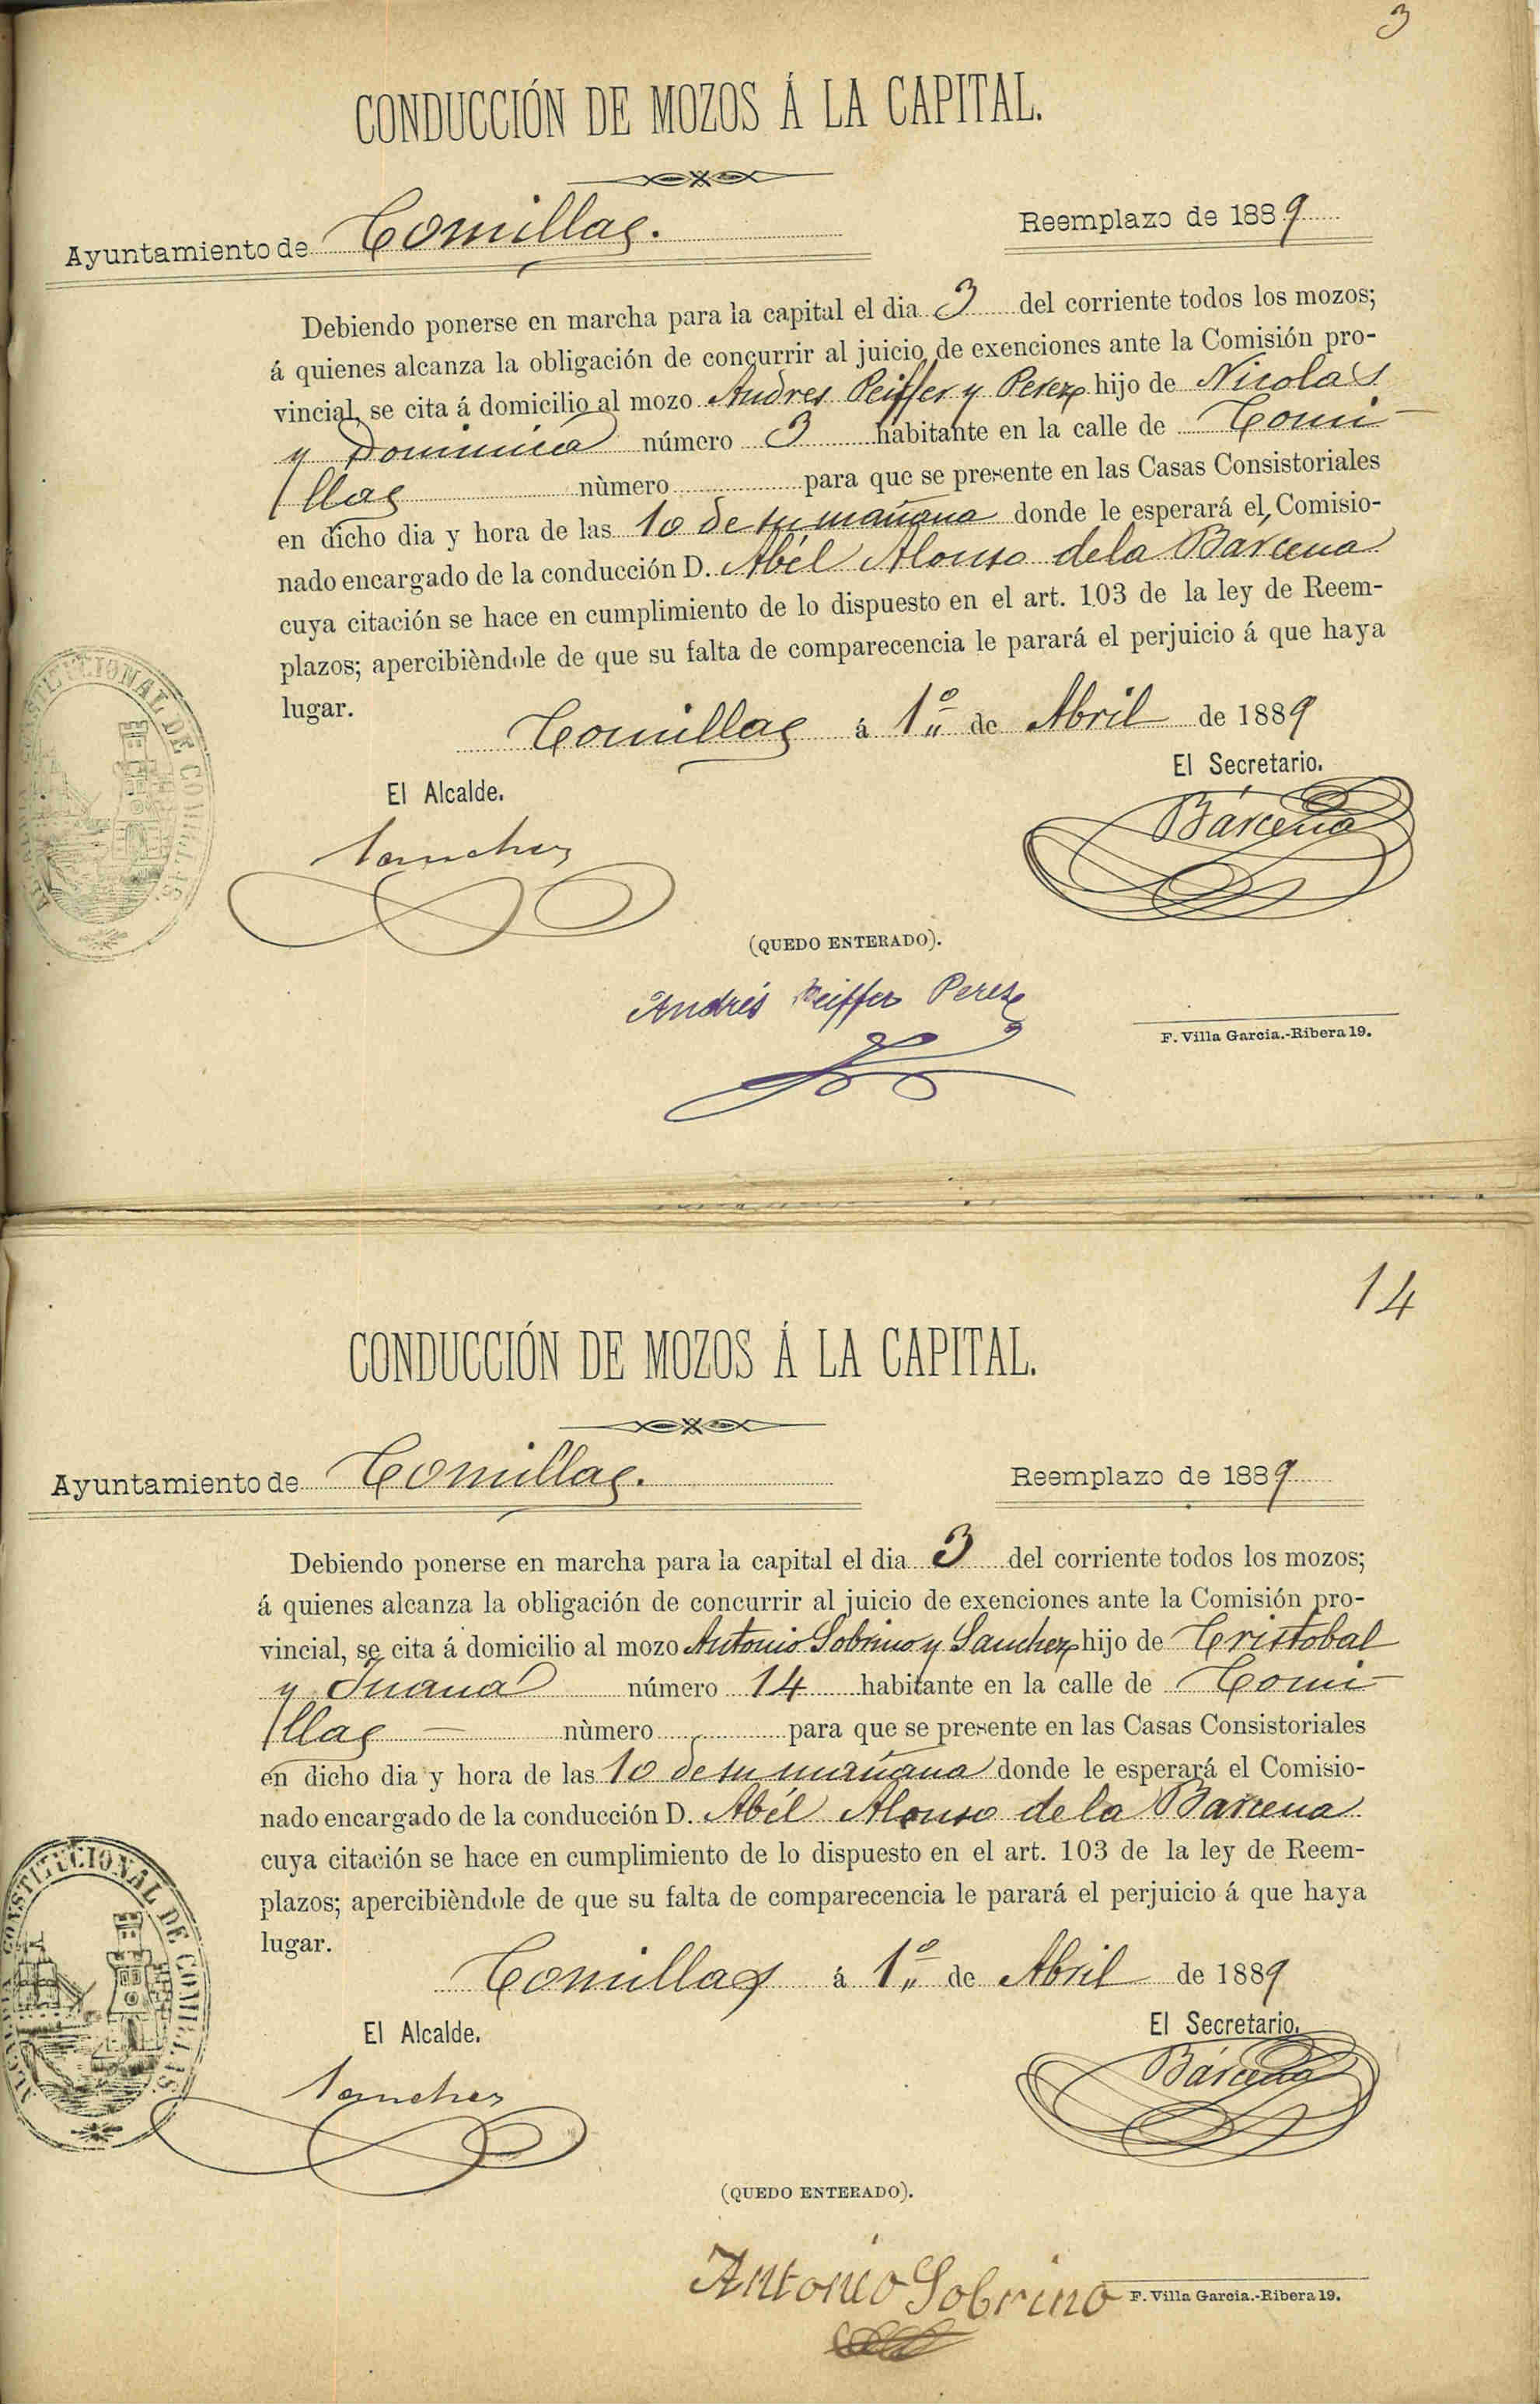 3
CONDUCCIÓN DE MOZOS Á LA CAPITAL.
Ayuntamiento de Comillas. Reemplazo de 1889
Debiendo ponerse en marcha para la capital el dia 3 del corriente todos los mozos;
á quienes alcanza la obligación de concurrir al juicio de exenciones ante la Comisión pro-
vincial, se cita á domicilio al mozo Andres Peiffer y Perez hijo de Nicolas
y Dominica número 3 habitante en la calle de Comi-
llas nùmero para que se presente en las Casas Consistoriales
en dicho dia y hora de las 10 de su mañana donde le esperará el Comisio-
nado encargado de la conducción D. Abél Alonso de la Barcena
cuya citación se hace en cumplimiento de lo dispuesto en el art. 103 de la ley de Reem-
plazos; apercibièndole de que su falta de comparecencia le parará el perjuicio á que haya
lugar.
Comillas á 1º de Abril de 1889
El Alcalde. El Secretario.
Sanchez Bárcena
(QUEDO ENTERADO).
Andrés Peiffer Perez
F. Villa Garcia.-Ribera 19.
14
CONDUCCIÓN DE MOZOS Á LA CAPITAL.
Ayuntamiento de Comillas. Reemplazo de 1889
Debiendo ponerse en marcha para la capital el dia 3 del corriente todos los mozos;
á quienes alcanza la obligación de concurrir al juicio de exenciones ante la Comisión pro-
vincial, se cita á domicilio al mozo Antonio Sobrino y Sanchez hijo de Cristobal
y Juana número 14 habitante en la calle de Comi-
llas nùmero para que se presente en las Casas Consistoriales
en dicho dia y hora de las 10 de su mañana donde le esperará el Comisio-
nado encargado de la conducción D. Abél Alonso de la Barcena
cuya citación se hace en cumplimiento de lo dispuesto en el art. 103 de la ley de Reem-
plazos; apercibièndole de que su falta de comparecencia le parará el perjuicio á que haya
lugar.
Comillas á 1º de Abril de 1889
El Alcalde. El Secretario.
Sanchez Bárcena
(QUEDO ENTERADO).
Antonio Sobrino
F. Villa Garcia.-Ribera 19.